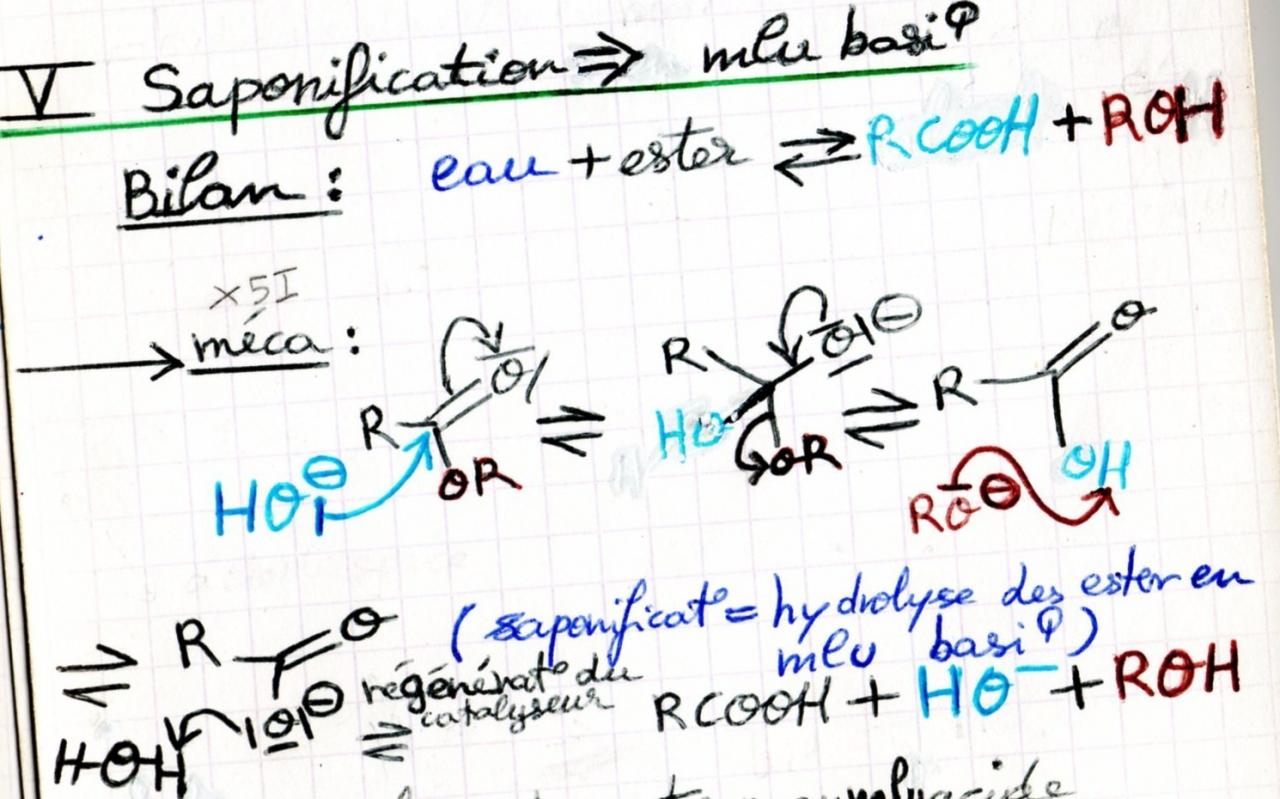 V Saponification ⇒ mlu basiq
Bilan : eau + ester ⇌ RCOOH + ROH
x5I
→ méca :
R O OR ⇌ R HO O⊖ OR ⇌ R O OH
HO⊖ RO⊖
(saponificat° = hydrolyse des ester en
mlu basiq)
⇌ R O O⊖ régénérat° du
catalyseur
HOH ⇌ RCOOH + HO⁻ + ROH